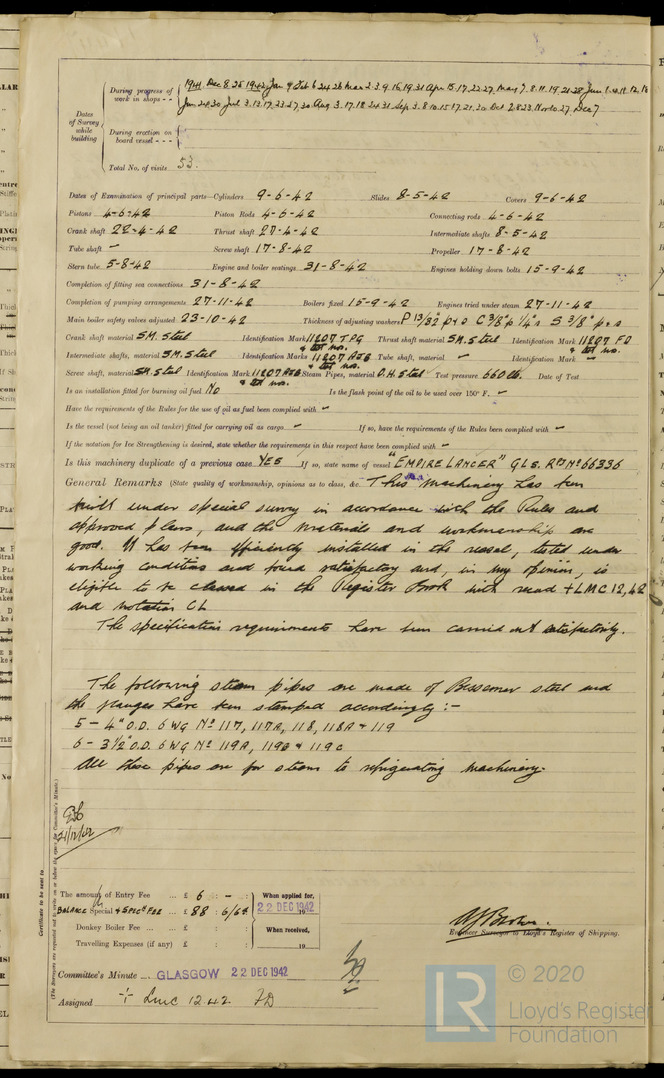 During progress of work in shops - -
1941. Dec 8. 26 1942. Jan 9 Feb 6 24 26 Mar 2. 3. 9. 16. 19. 31 Apr 15. 17. 22. 27. May 7. 8. 11. 19. 21. 28. Jun 1. 4. 12. 16
Jun 24. 30 Jul 3. 13. 17. 23. 27. 30 Aug 3. 17. 18 24. 31 Sep 3. 8. 10. 15. 17. 21. 30 Oct 2. 8. 23. Nov 10. 27. Dec 7
Dates of Survey while building
During erection on board vessel - - -
Total No. of visits 53.
Dates of Examination of principal parts—Cylinders 9-6-42 Slides 8-5-42 Covers 9-6-42
Pistons 4-6-42 Piston Rods 4-6-42 Connecting rods 4-6-42
Crank shaft 22-4-42 Thrust shaft 27-4-42 Intermediate shafts 8-5-42
Tube shaft - Screw shaft 17-8-42 Propeller 17-8-42
Stern tube 5-8-42 Engine and boiler seatings 31-8-42 Engines holding down bolts 15-9-42
Completion of fitting sea connections 31-8-42
Completion of pumping arrangements 27-11-42 Boilers fixed 15-9-42 Engines tried under steam 27-11-42
Main boiler safety valves adjusted 23-10-42 Thickness of adjusting washers P 13/32 p & s C 3/8" p 1/4" s S 3/8" p & s
Crank shaft material S.M. Steel Identification Mark 11207 T.P.G & test nos. Thrust shaft material S.M. Steel Identification Mark 11207 F D & test nos.
Intermediate shafts, material S.M. Steel Identification Marks 11207 & test nos. Tube shaft, material - Identification Mark -
Screw shaft, material S.M. Steel Identification Mark 11207 & test nos. Steam Pipes, material O.H. Steel Test pressure 660 lb. Date of Test
Is an installation fitted for burning oil fuel No Is the flash point of the oil to be used over 150° F. -
Have the requirements of the Rules for the use of oil as fuel been complied with -
Is the vessel (not being an oil tanker) fitted for carrying oil as cargo - If so, have the requirements of the Rules been complied with -
If the notation for Ice Strengthening is desired, state whether the requirements in this respect have been complied with -
Is this machinery duplicate of a previous case YES If so, state name of vessel "EMPIRE LANCER" GLS. Rpt No 66336
General Remarks (State quality of workmanship, opinions as to class, &c. This machinery has been
built under special survey in accordance with the Rules and
approved plans, and the materials and workmanship are
good. It has been efficiently installed in the vessel, tested under
working conditions and found satisfactory and, in my opinion, is
eligible to be classed in the Register Book with record + LMC 12,42
and notation CL
The specification requirements have been carried out satisfactorily.
The following steam pipes are made of Bessemer steel and
the flanges have been stamped accordingly :-
5 - 4" O.D. 6 WG No 117, 117A, 118, 118A & 119
6 - 3 1/2" O.D. 6 WG No 119A, 119B & 119C
All these pipes are for steam to refrigerating machinery.
21/12/42
Certificate to be sent to
(The Surveyors are requested not to write on or below the space for Committee's Minute.)
The amount of Entry Fee ... £ 6 : - : When applied for,
BALANCE Special + SPECN FEE ... £ 88 : 6/64 22 DEC 1942
Donkey Boiler Fee ... £ : : When received,
Travelling Expenses (if any) £ : : 19
Engineer Surveyor to Lloyd's Register of Shipping.
Committee's Minute GLASGOW 22 DEC 1942
Assigned + LMC 12 42 FD
LR
© 2020
Lloyd's Register
Foundation